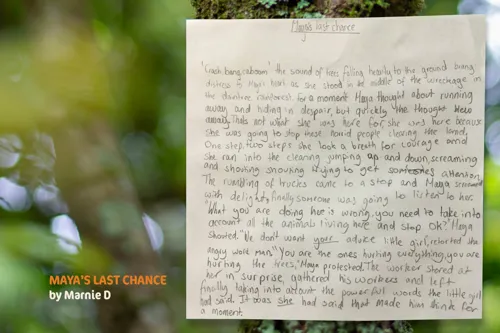 Maya's last chance
'Crash, bang, caboom' the sound of trees falling heavily to the ground bring
distress to Maya's heart as she stood in the middle of the wreckage in
the daintree rainforest. for a moment Maya thought about running
away and hiding in despair, but quickly she thought
thats not what she was here for, she was here because
she was going to stop these horrid people clearing the land.
One step, two steps she took a breath for courage and
she ran into the clearing jumping up and down, screaming
and shouting trying to get attention.
The rumbling of trucks came to a stop and Maya
with delight, finally someone was going to listen to her.
"What you are doing here is wrong, you need to take into
account all the animals living here and stop OK?" Maya
shouted. "We don't want your advice little girl, retorted the
angry work man." You are the ones hurting everything, you are
hurting the trees," Maya protested. The worker stared at
her in surprise, gathered his workers and left
finally taking into account the powerful words the little girl
had said. It was she had said that made him think for
a moment.
MAYA'S LAST CHANCE
by Marnie D